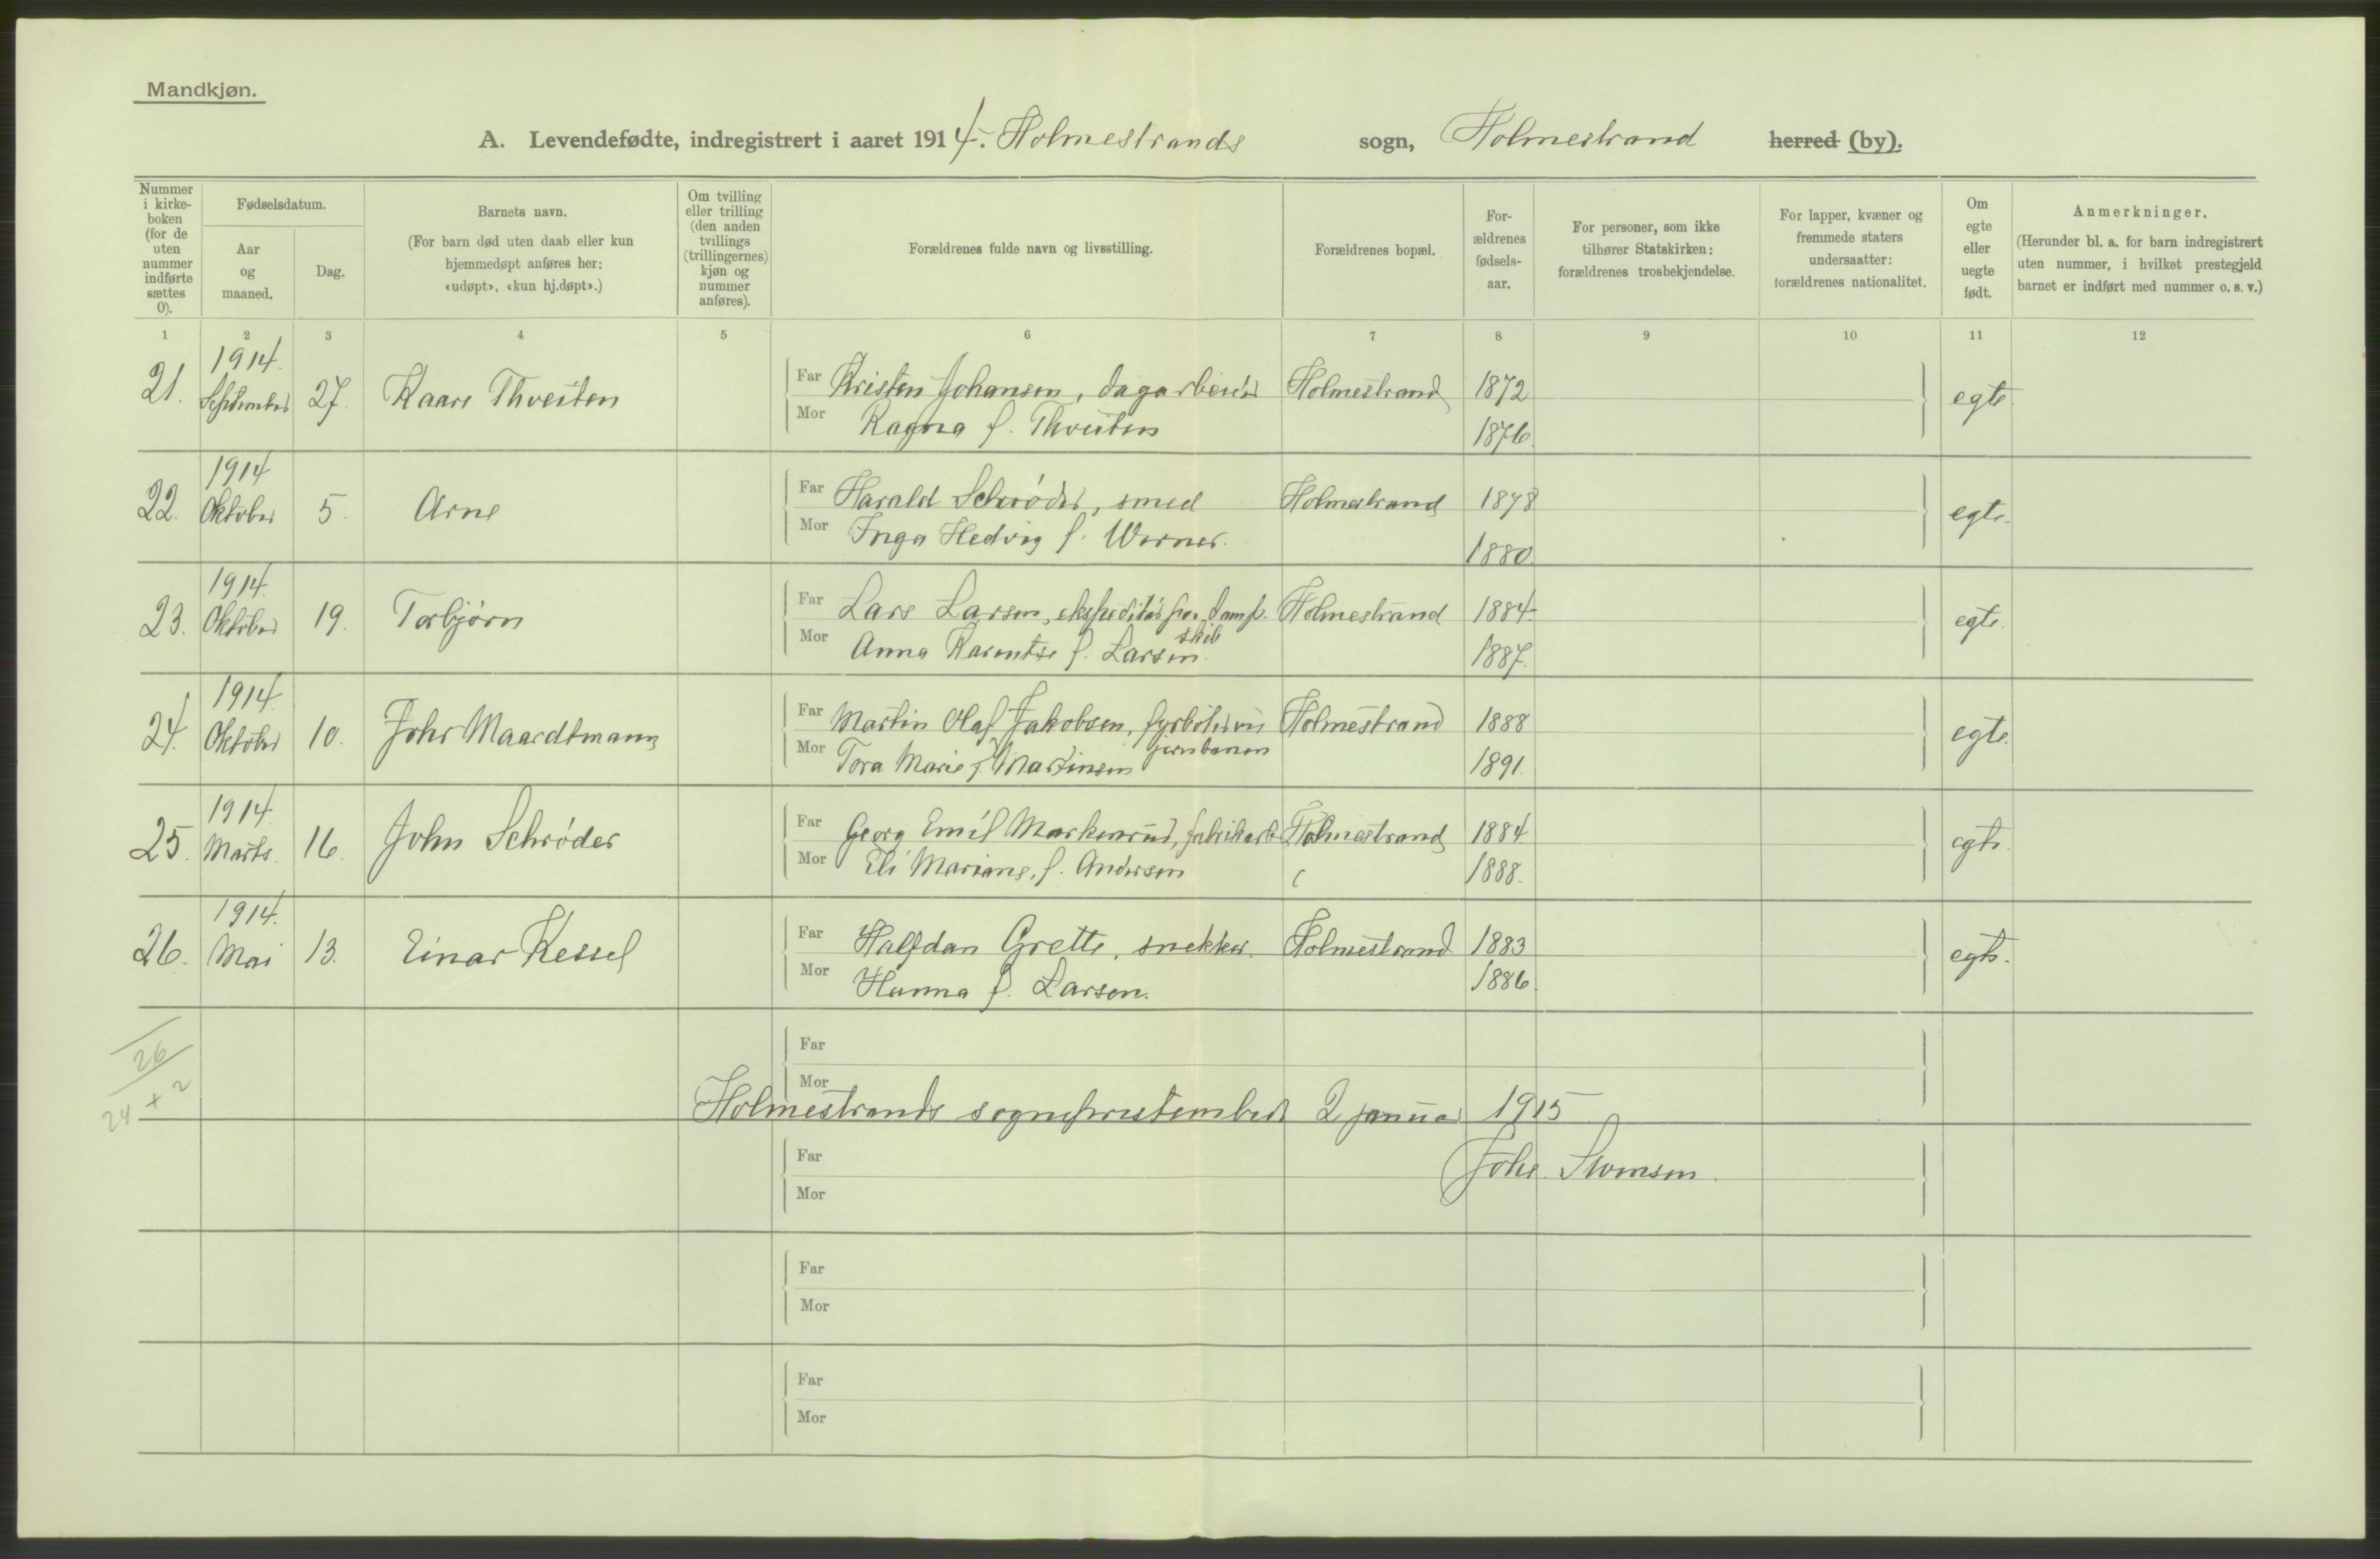 Mandkjøn.
A. Levendefødte, indregistrert i aaret 1914. Holmestrands sogn, Holmestrand herred (by).
Nummer i kirke-boken (for de uten nummer indførte sættes 0).
Fødselsdatum.
Aar og maaned.
Dag.
Barnets navn.
(For barn død uten daab eller kun hjemmedøpt anføres her: «udøpt», «kun hj.døpt».)
Om tvilling eller trilling (den anden tvillings (trillingernes) kjøn og nummer anføres).
Forældrenes fulde navn og livsstilling.
Forældrenes bopæl.
For-ældrenes fødsels-aar.
For personer, som ikke tilhører Statskirken: forældrenes trosbekjendelse.
For lapper, kvæner og fremmede staters undersaatter: forældrenes nationalitet.
Om egte eller uegte født.
Anmerkninger.
(Herunder bl. a. for barn indregistrert uten nummer, i hvilket prestegjeld barnet er indført med nummer o. s. v.)
1 2 3 4 5 6 7 8 9 10 11 12
1914.
21. September 27. Kaare Thveiten Far Kristen Johansen, dagarbeider Holmestrand 1872 egte.
Mor Ragna f. Thveiten 1876.
1914
22. Oktober 5. Arne Far Harald Schrøder, smed Holmestrand 1878 egte.
Mor Inga Hedvig f. Werner. 1880.
1914.
23. Oktober 19. Torbjørn Far Lars Larsen, ekspeditør paa damp. Holmestrand 1884. egte.
skib
Mor Anna f. Larsen. 1887.
1914.
24. Oktober 10. Johs Maardtmann Far Martin Olaf Jakobsen, fyrbøter ved Holmestrand 1888 egte.
jernbanen
Mor Tora Marie f. Martinsen 1891.
1914.
25. Marts. 16. John Schrøder Far Georg Emil Markenrud, fabrikarb. Holmestrand 1884 egte.
Mor Eli Mariane, f. Andersen 1888.
1914.
26. Mai 13. Einar Kessel Far Halfdan Grette, snekker. Holmestrand 1883 egte.
Mor Hanna f. Larsen. 1886.
26
24 + 2
Far
Mor
Holmestrands sogneprestembede 2 januar 1915
Far
Johs.
Mor
Far
Mor
Far
Mor